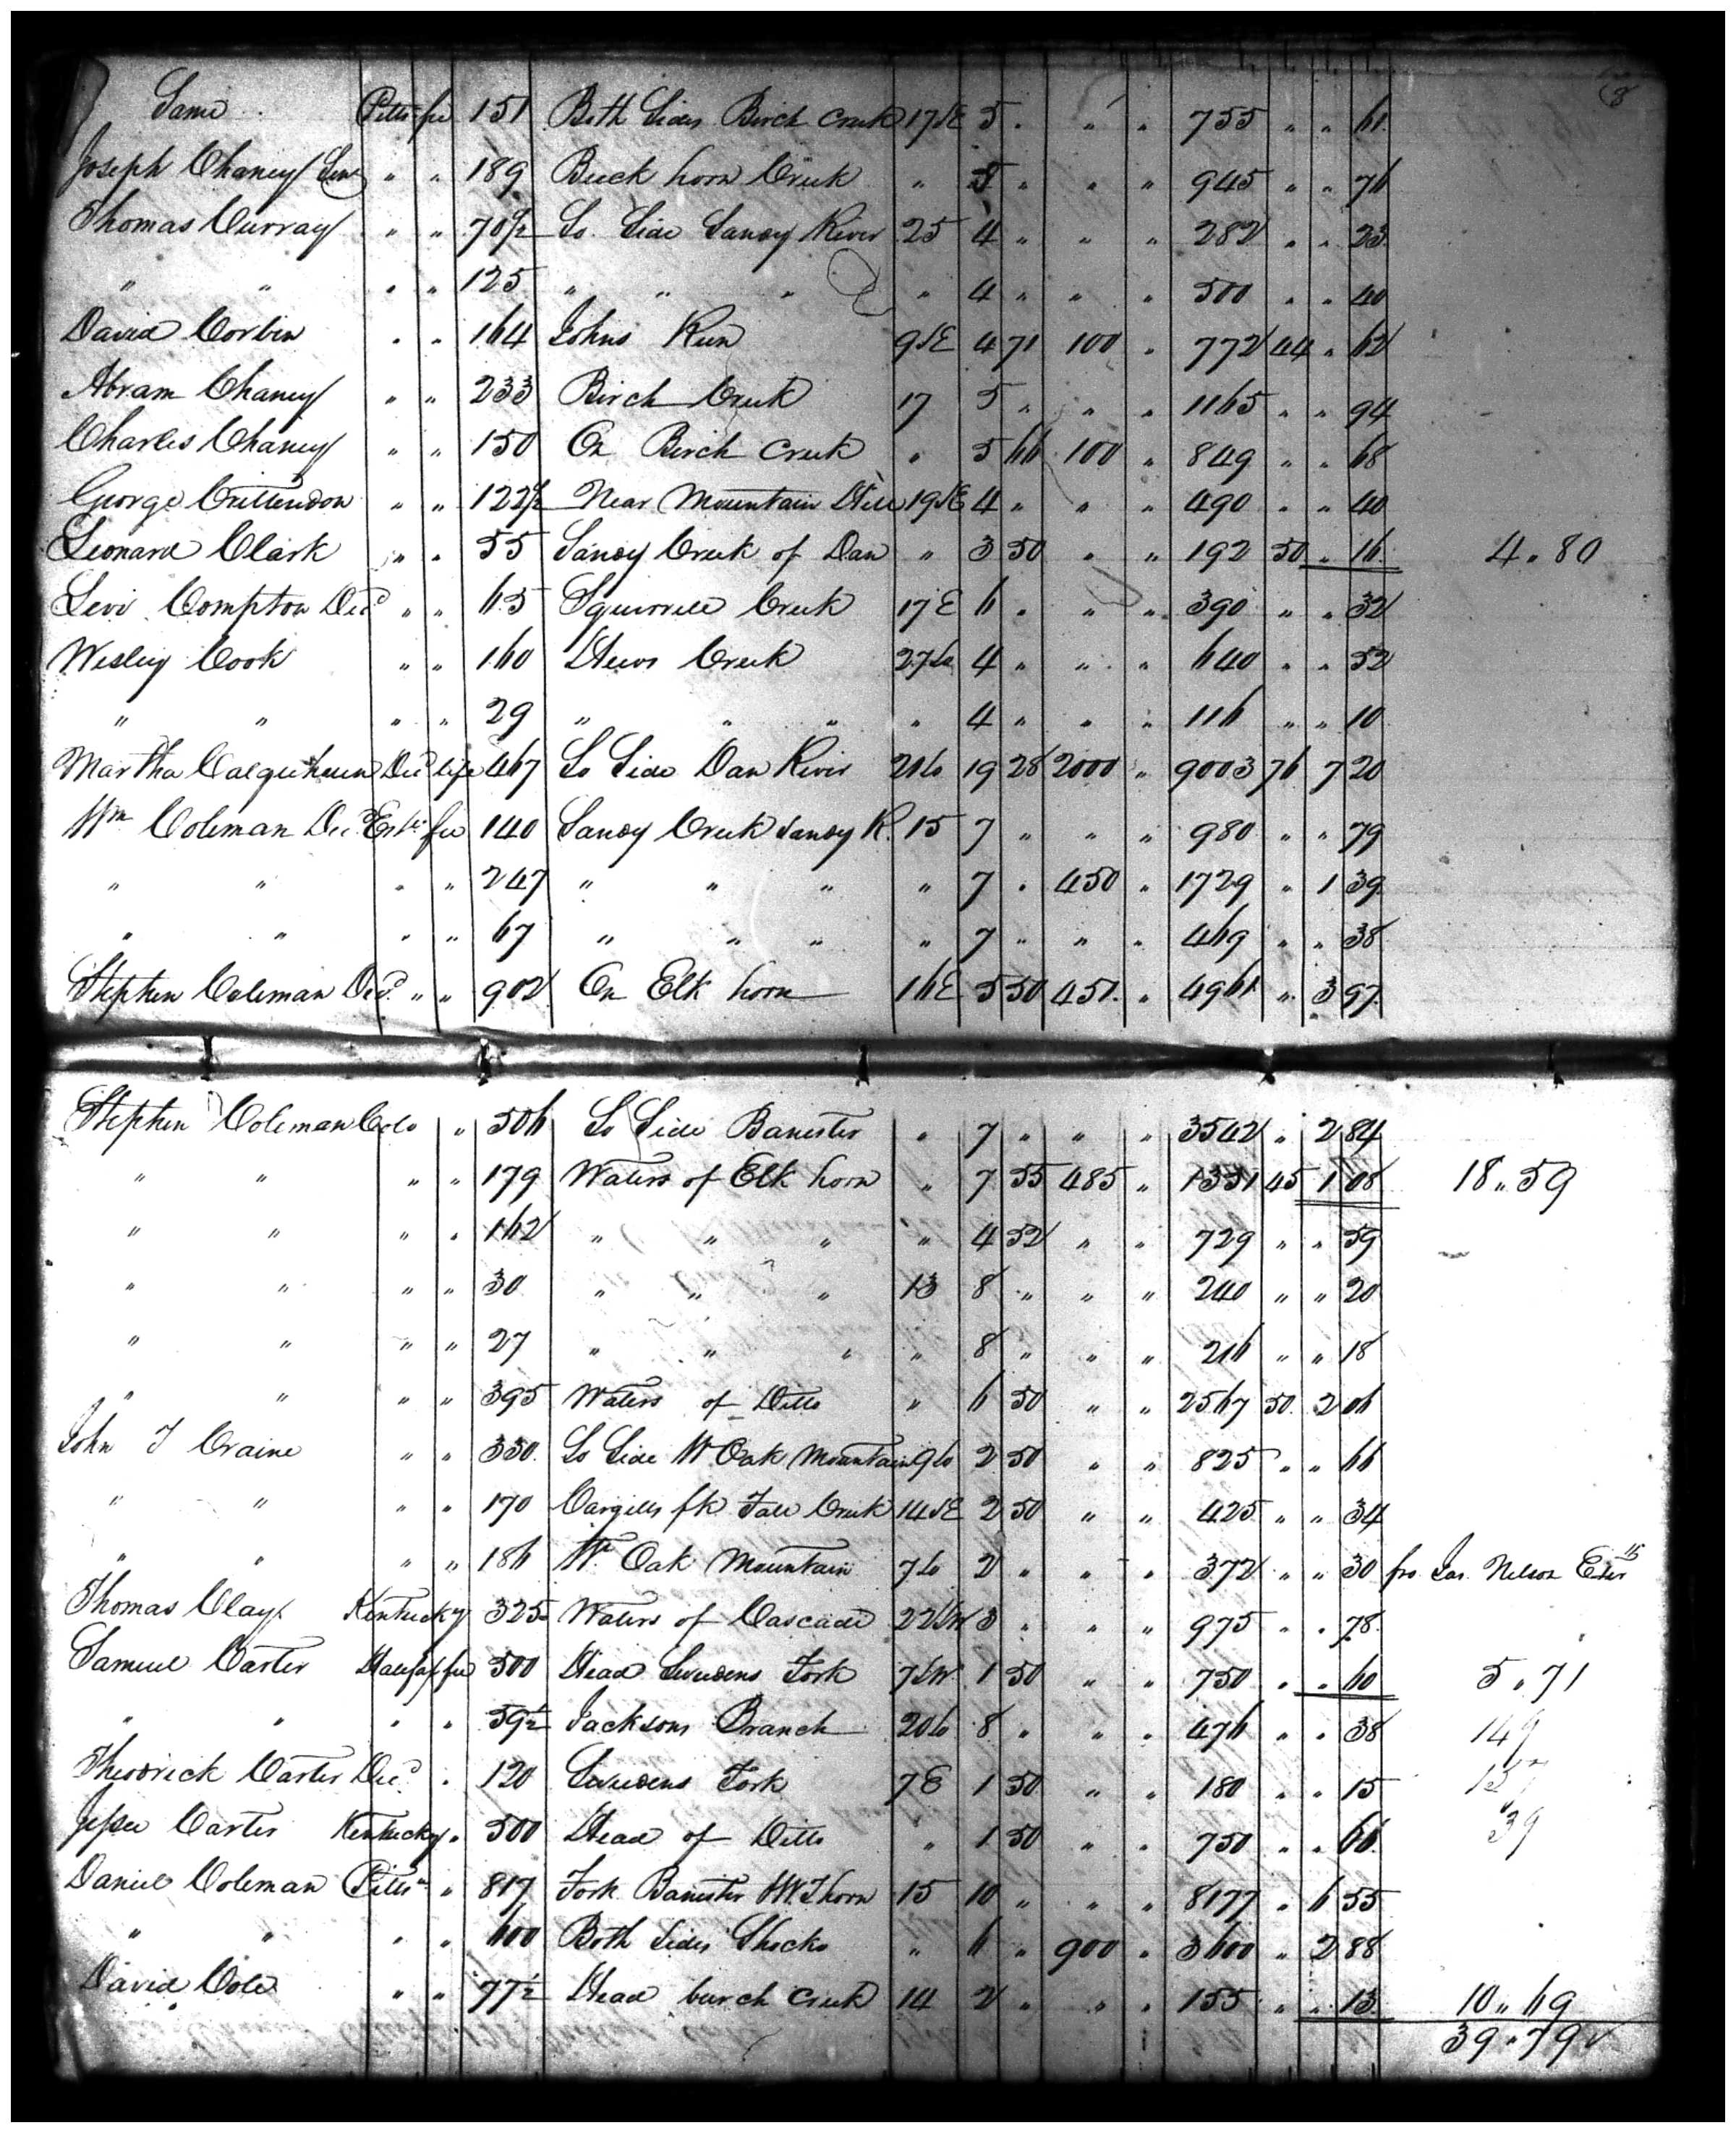 8
Same Pitts fee 151 Both Sides Birch Creek 17 SE 5 " " " 755 " " 61
Joseph Chaney Senr " " 189 Buck horn Creek " 5 " " " 945 " " 76
Thomas Curray " " 70½ So. Side Sandy River 25 4 " " " 282 " " 23
" " " " 125 " " " " 4 " " " 500 " " 40
David Corbin " " 164 Johns Run 9 SE 4 71 100 " 772 44 " 62
Abram Chaney " " 233 Birch Creek 17 5 " " " 1165 " " 94
Charles Chaney " " 150 On Birch Creek " 5 66 100 " 849 " " 68
George Crittendon " " 122½ Near Mountain Hill 19 SE 4 " " " 490 " " 40
Leonard Clark " " 55 Sandy Creek of Dan " 3 50 " " 192 50 " 16 4 " 80
Levi Compton Decd " " 65 Squirrell Creek 17 E 6 " " " 390 " " 32
Wesley Cook " " 160 Stews Creek 27 So 4 " " " 640 " " 52
" " " " 29 " " " " 4 " " " 116 " " 10
Martha Calquehoun Decd life 467 So Side Dan River 21 So 19 28 2000 " 9003 76 7 20
Wm Coleman Decd Este fee 140 Sandy Creek Sandy R. 15 7 " " " 980 " " 79
" " " " 247 " " " " 7 " 450 " 1729 " 1 39
" " " " 67 " " " " 7 " " " 469 " " 38
Stephen Coleman Decd " " 902 On Elk horn 16 E 5 50 451 " 4961 " 3 97
Stephen Coleman Colo " 506 So Side Banister " 7 " " " 3542 " 2 84
" " " " 179 Waters of Elk horn " 7 55 485 " 1351 45 1 08 18 " 59
" " " " 162 " " " " 4 52 " " 729 " " 59
" " " " 30 " " " 13 8 " " " 240 " " 20
" " " " 27 " " " " 8 " " " 216 " " 18
" " " " 395 Waters of Ditto " 6 50 " " 2567 50 2 06
John T Craine " " 330 So Side W Oak Mountain 9 So 2 50 " " 825 " " 66
" " " " 170 Cargills fk Fall Creek 14 SE 2 50 " " 425 " " 34
" " " " 186 We Oak Mountain 7 So 2 " " " 372 " " 30 fro Jas Nelson Exor 15
Thomas Clay Kentucky 325 Waters of Cascade 22 SW 3 " " " 975 " " 78
Samuel Carter Halifax fee 500 Head Sweedens Fork 7 SW 1 50 " " 750 " " 60 5 " 71
" " " " 59½ Jacksons Branch 20 So 8 " " " 476 " " 38 149
Theodrick Carter Decd " 120 Sweedens Fork 7 E 1 50 " " 180 " " 15
Jesse Carter Kentucky " 500 Head of Ditto " 1 50 " " 750 " " 60 39
Daniel Coleman Pitts " 817 Fork Banister & W. Thorn 15 10 " " " 8177 " 6 55
" " " " 600 Both Sides Shocko " 6 " 900 " 3600 " 2 88
David Cole " " 77½ Head burch Creek 14 2 " " " 155 " " 13 10 " 69
39 " 79